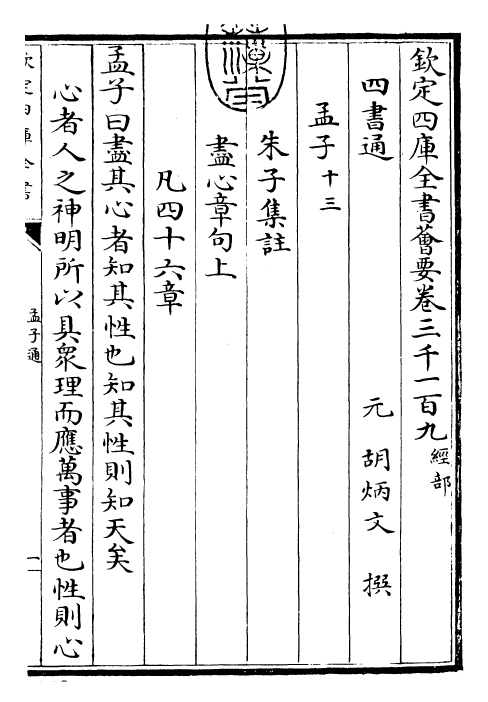 欽定四庫全書薈要卷三千一百九 經部
四書通 元 胡炳文 撰
孟子十三
朱子集註
盡心章句上
凡四十六章
孟子曰盡其心者知其性也知其性則知天矣
心者人之神明所以具衆理而應萬事者也性則心
欽定四庫全書
孟子通
一